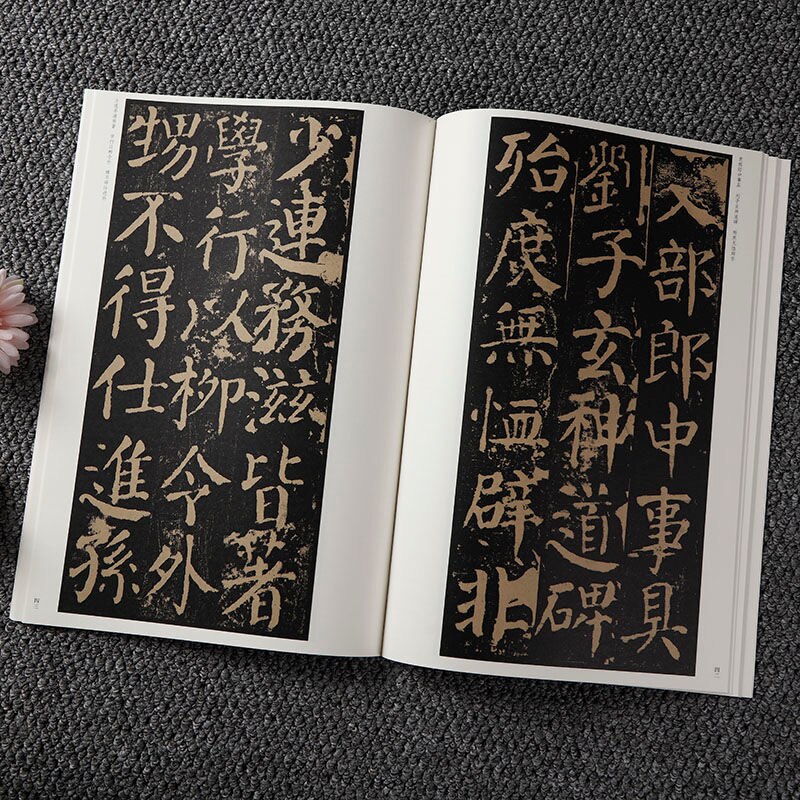 部郎中事具
劉子玄神道碑
殆庶無恤辟非
四二
少連務滋皆著
學行以柳令外
甥不得仕進孫
四三